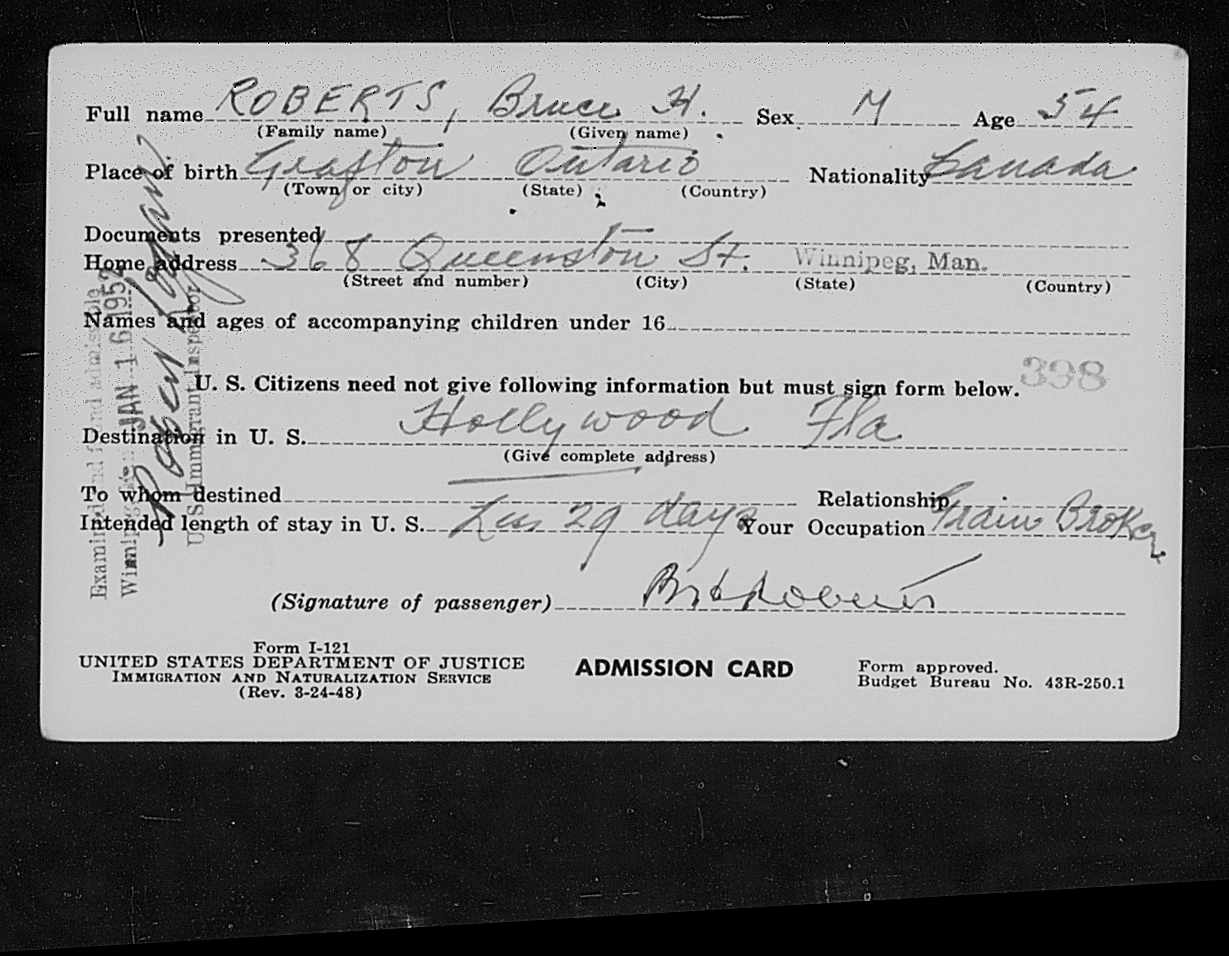 Full name ROBERTS, Bruce H. Sex M Age 54
(Family name) (Given name)
Place of birth Grafton Ontario Nationality Canada
(Town or city) (State) (Country)
Documents presented
Home address 368 Queenston St. Winnipeg, Man.
(Street and number) (City) (State) (Country)
Names and ages of accompanying children under 16
398
U. S. Citizens need not give following information but must sign form below.
Destination in U. S. Hollywood Fla
(Give complete address)
To whom destined Relationship
Intended length of stay in U. S. Less 29 days Your Occupation Grain Broker
(Signature of passenger) BH Roberts
Form I-121
UNITED STATES DEPARTMENT OF JUSTICE
IMMIGRATION AND NATURALIZATION SERVICE
(Rev. 3-24-48)
ADMISSION CARD
Form approved.
Budget Bureau No. 43R-250.1
Examined and found admissible
JAN 16 1952
U S Immigrant Inspector